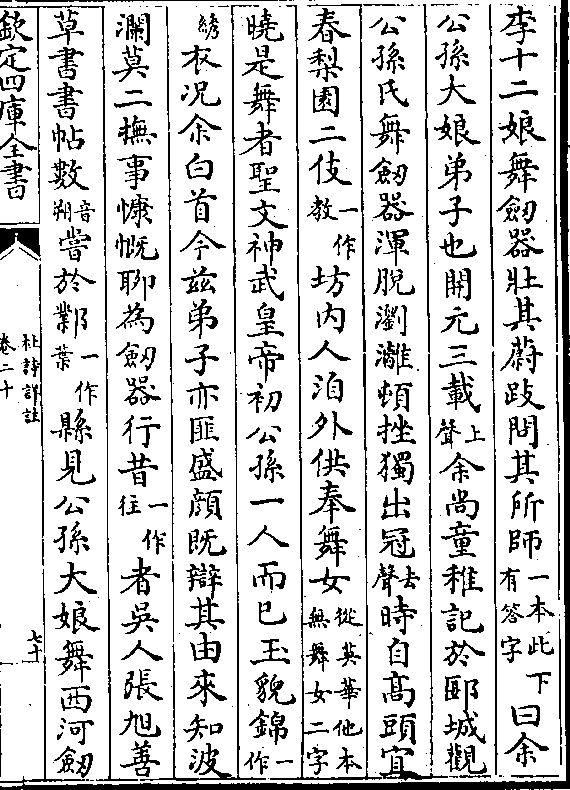 李十二娘舞劒器壯其蔚跂問其所師一本此下有答字曰余
公孫大娘弟子也開元三載上聲余尚童稚記於郾城觀
公孫氏舞劒器渾脫瀏灕頓挫獨出冠去聲時自高頭宜
春梨園二伎一作教坊內人洎外供奉舞女從英華他本無舞女二字
曉是舞者聖文神武皇帝初公孫一人而已玉貌錦一作
繡衣况余白首今兹弟子亦匪盛顔既辯其由來知波
瀾莫二撫事慷慨聊為劒器行昔一作往者吳人張旭善
草書書帖數音朔嘗於鄴一作葉縣見公孫大娘舞西河劒
欽定四庫全書
杜詩詳註
卷二十
七十